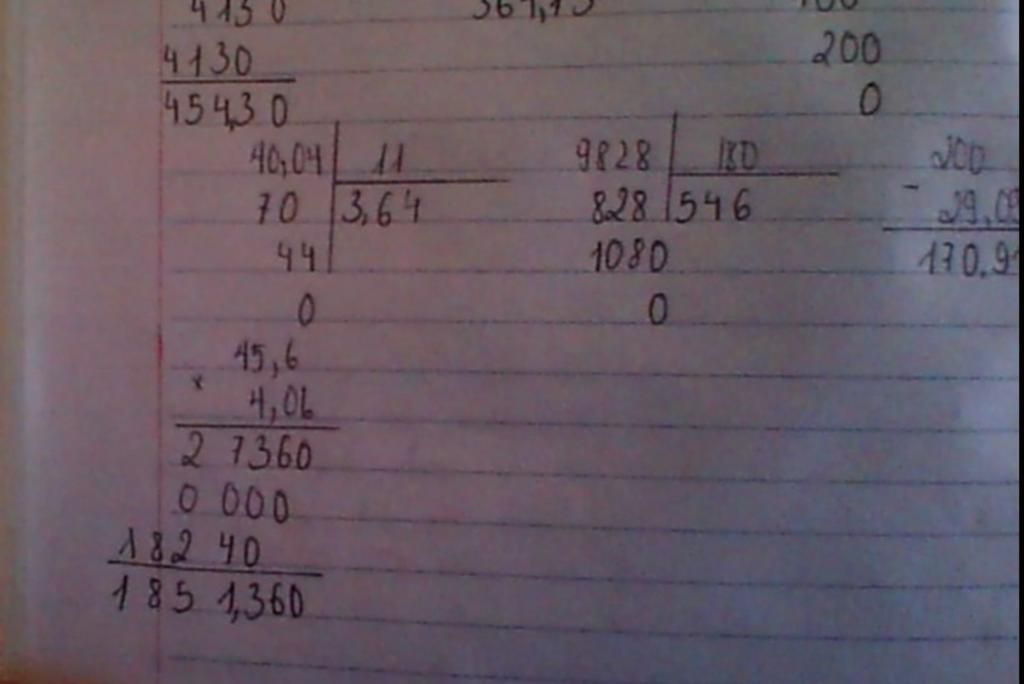 4130
4130
454,30
200
0
40,04 11
70 3,64
44
0
9828 180
828 546
1080
0
200
- 29,09
170,91
45,6
× 4,06
2 7360
0 000
182 40
185 1,360